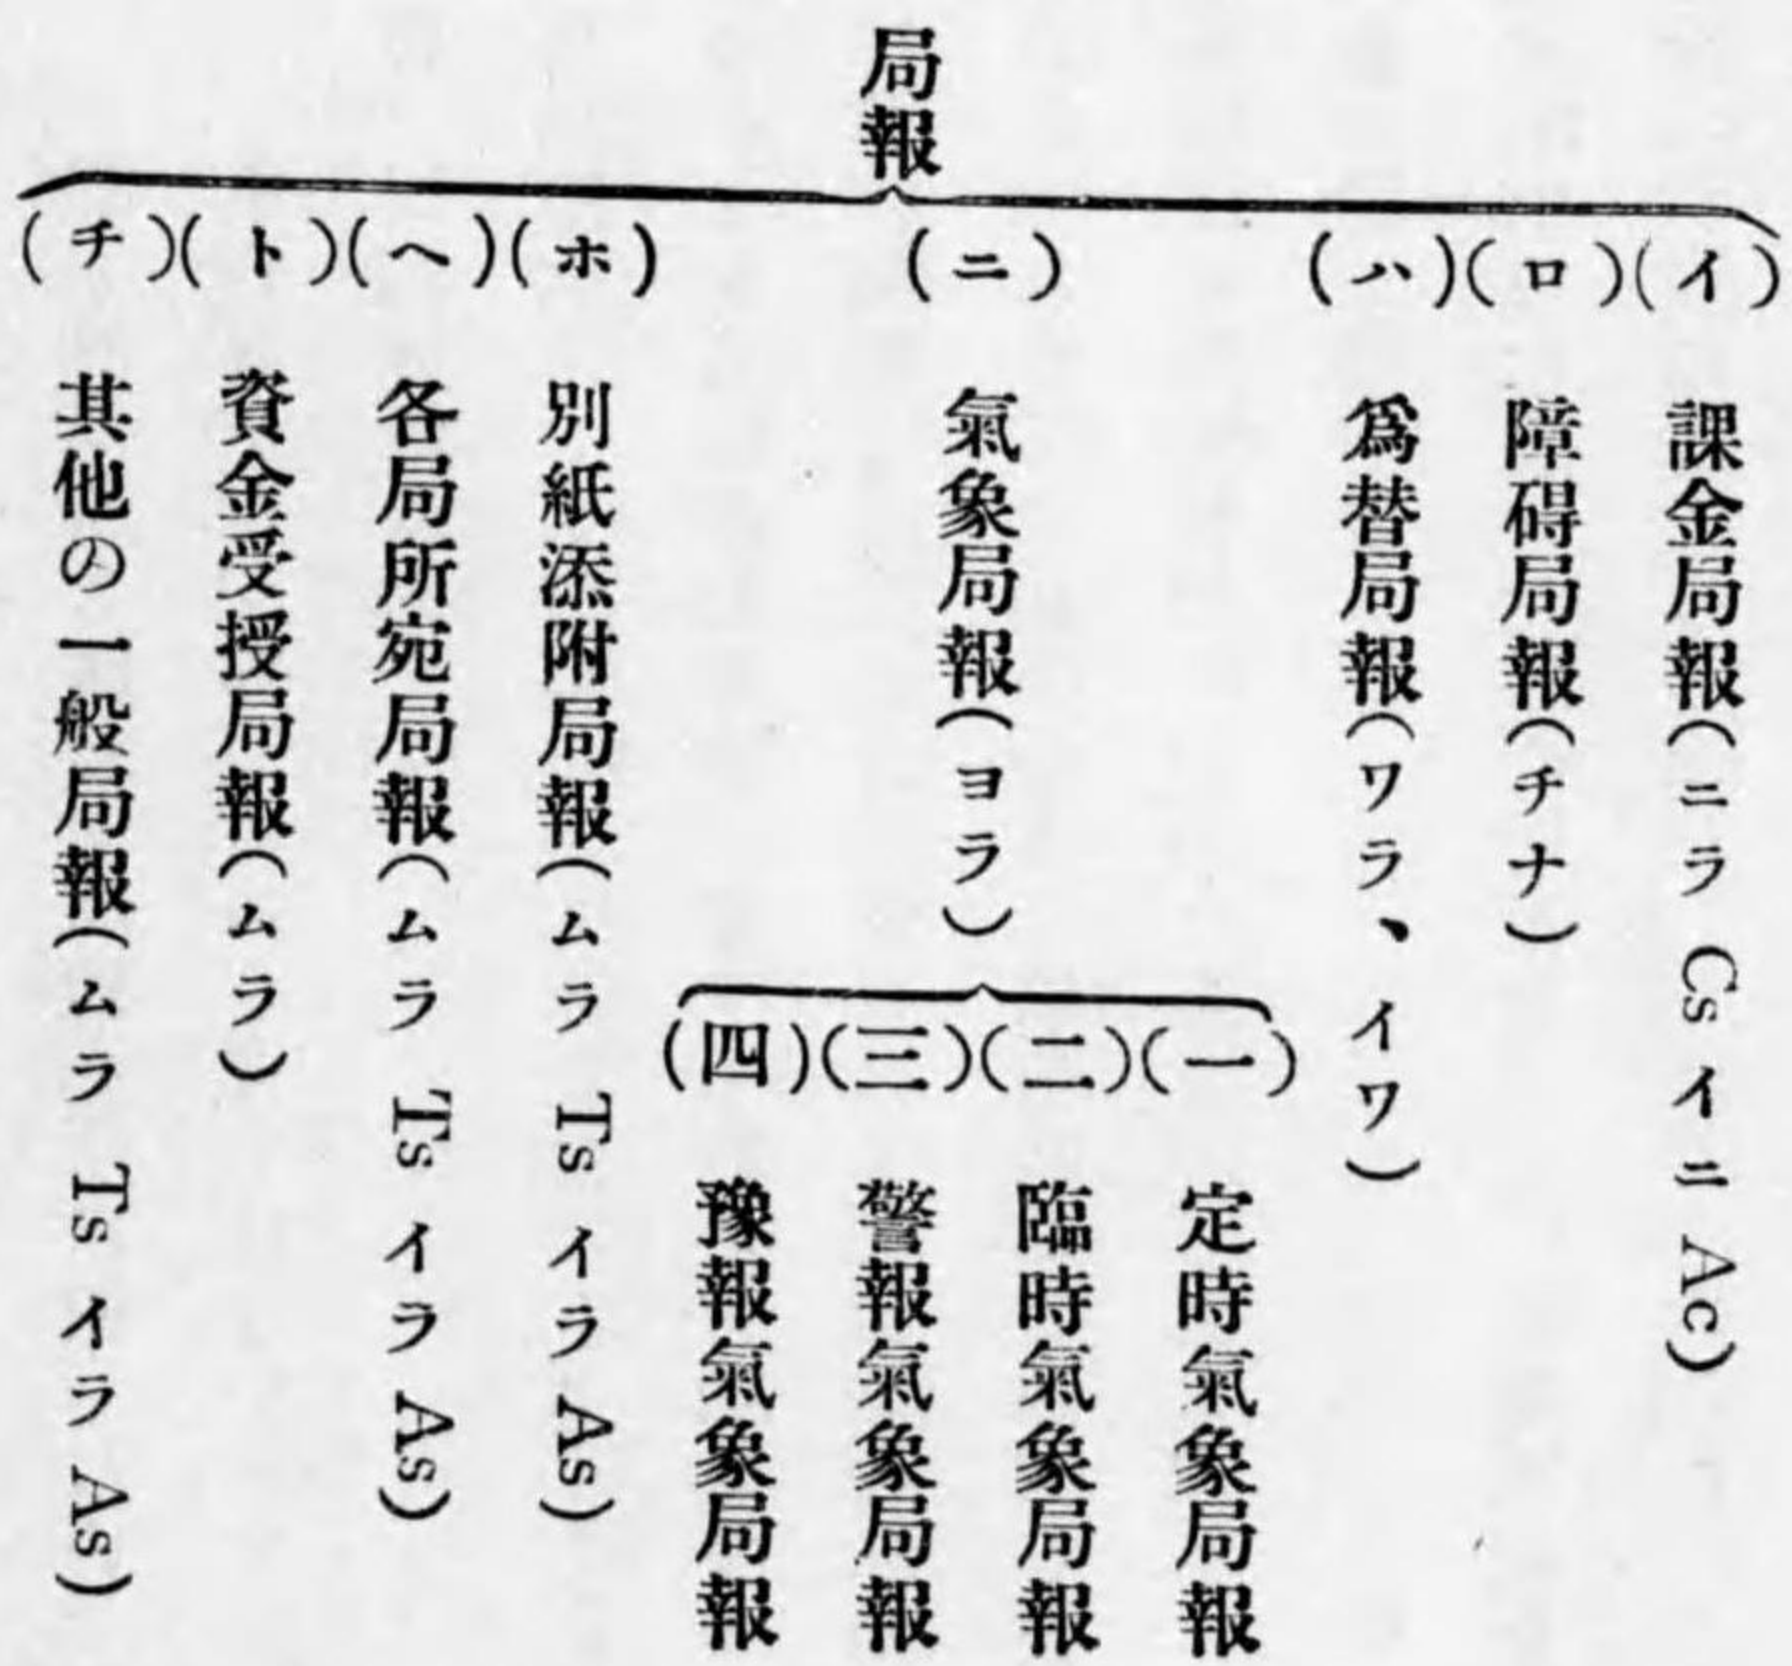 局報
(イ) 課金局報(ニラ Cs イニ Ac)
(ロ) 障碍局報(チナ)
(ハ) 爲替局報(ワラ、イワ)
(ニ) 氣象局報(ヨラ)
(一) 定時氣象局報
(二) 臨時氣象局報
(三) 警報氣象局報
(四) 豫報氣象局報
(ホ) 別紙添附局報(ムラ Ts イラ As)
(ヘ) 各局所宛局報(ムラ Ts イラ As)
(ト) 資金受授局報(ムラ)
(チ) 其他の一般局報(ムラ Ts イラ As)